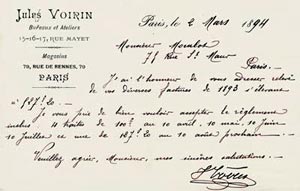 Jules VOIRIN
Bureaux et Ateliers
15-16-17, RUE MAYET
Magasins
79, RUE DE RENNES, 79
PARIS
Paris, le 2 Mars 1894
Monsieur
71 Rue St Maur
Paris.
J'ai l'honneur de vous dresser relevé
de vos diverses factures de 1893 s'élevant
à 587f 20.
Je vous prie de bien vouloir accepter le règlement
inclus 4 traites de 100f au 10 avril, 10 mai, 10 Juin
10 Juillet et une de 187f 20 au 10 août prochain.
Veuillez agréer, Monsieur, mes sincères salutations.